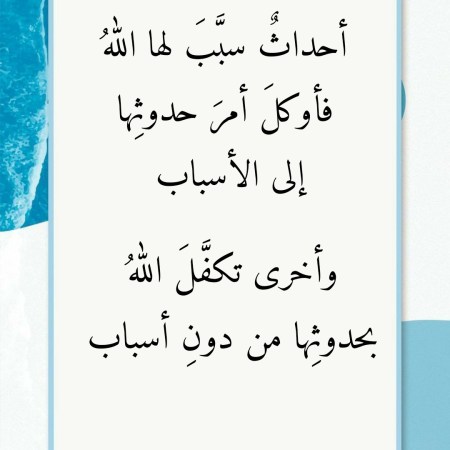 أحداثٌ سبَّبَ لها اللهُ
فأوكلَ أمرَ حدوثِها
إلى الأسباب
وأخرى تكفَّلَ اللهُ
بحدوثِها من دونِ أسباب